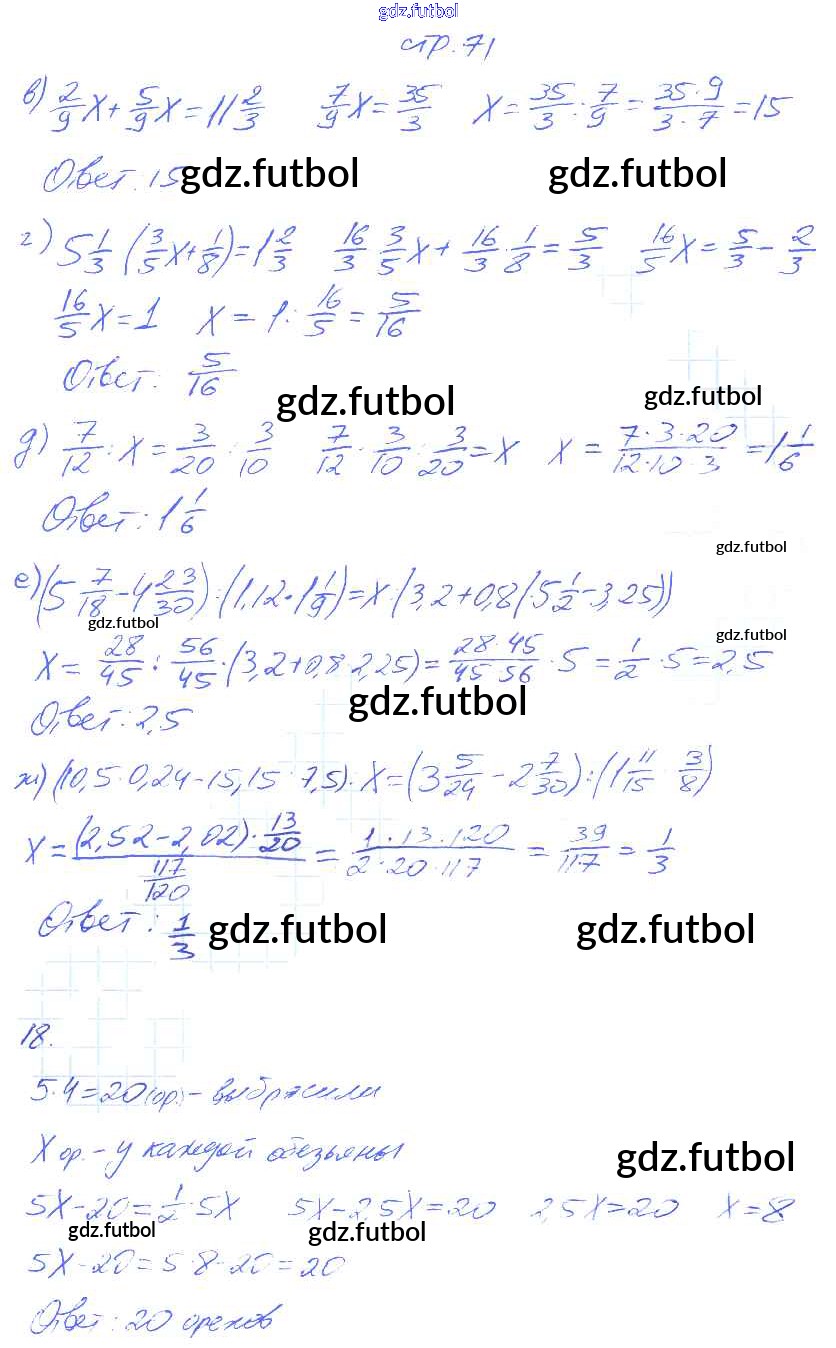 gdz.futbol
стр. 71
в) 2/9 x + 5/9 x = 11 2/3   7/9 x = 35/3   x = 35/3 : 7/9 = 35·9/3·7 = 15
Ответ. 15 gdz.futbol gdz.futbol
г) 5 1/3 (3/5 x + 1/8) = 1 2/3   16/3 · 3/5 x + 16/3 · 1/8 = 5/3   16/5 x = 5/3 − 2/3
16/5 x = 1   x = 1 : 16/5 = 5/16
Ответ: 5/16 gdz.futbol gdz.futbol
д) 7/12 : x = 3/20 : 3/10   7/12 · 3/10 : 3/20 = x   x = 7·3·20/12·10·3 = 1 1/6
Ответ: 1 1/6
gdz.futbol
е) (5 7/18 − 4 23/30) : (1,12 · 1 1/9) = x · (3,2 + 0,8 (·5 1/2 − 3,25))
gdz.futbol gdz.futbol
x = 28/45 : 56/45 · (3,2 + 0,8 · 2,25) = 28·45/45·56 · 5 = 1/2 · 5 = 2,5
Ответ: 2,5 gdz.futbol
ж) (10,5 · 0,24 − 15,15 : 7,5) : x = (3 5/24 − 2 7/30) : (1 11/15 · 3/8)
x = (2,52 − 2,02) · 13/20 / 117/120 = 1·13·120/2·20·117 = 39/117 = 1/3
Ответ: 1/3 gdz.futbol gdz.futbol
18.
5·4=20 (ор.) − выбрасили
x ор. − у каждой обезьяны
gdz.futbol
5x − 20 = 1/2 · 5x   5x − 2,5x = 20   2,5x = 20   x = 8
gdz.futbol gdz.futbol
5x − 20 = 5·8 − 20 = 20
Ответ: 20 орехов